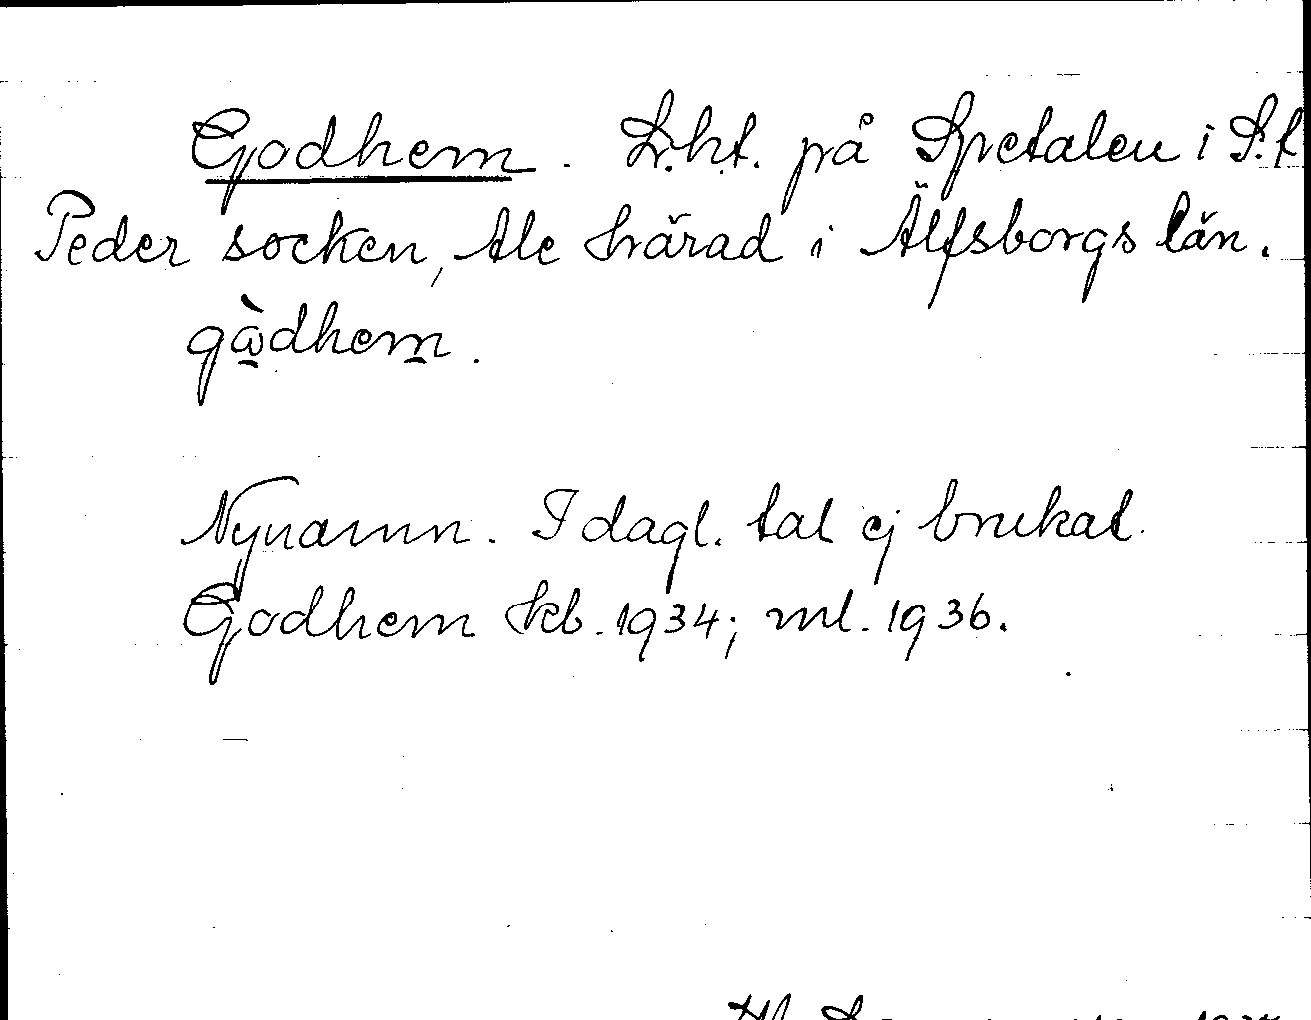 Godhem. Lht. på Spetalen i S:t
Peder socken, Ale härad i Älfsborgs län.
gàdhem.
Nynamn. I dagl. tal ej brukat.
Godhem kb. 1934; ml. 1936.